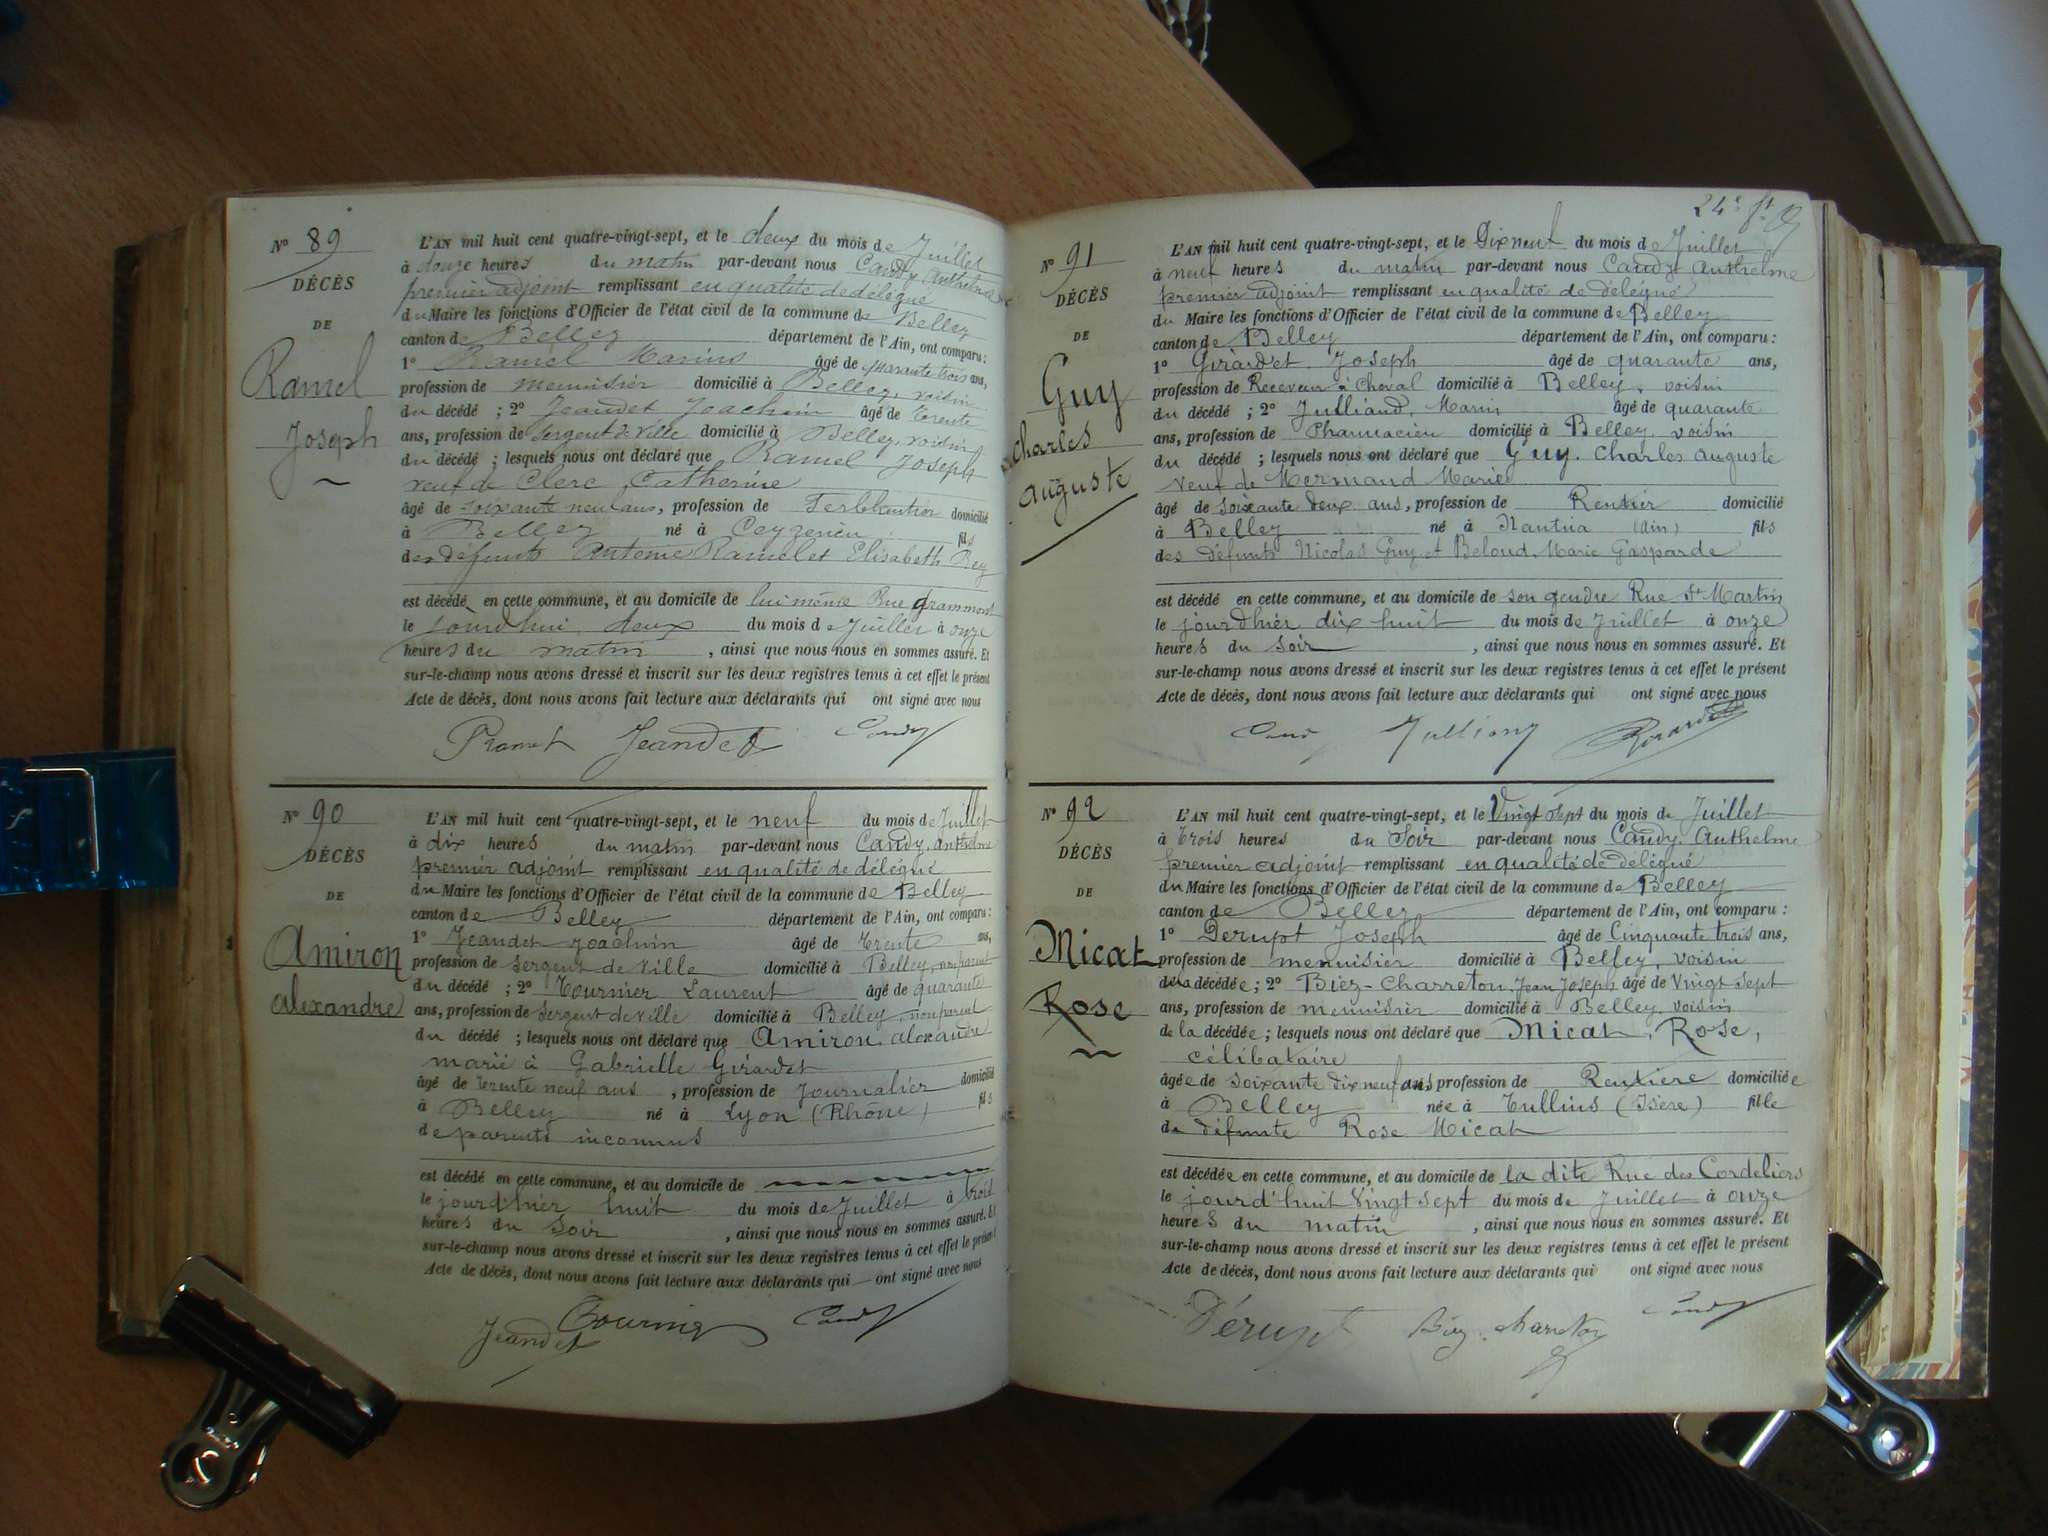 N° 89
DÉCÈS
DE
Ramel
Joseph
L'AN mil huit cent quatre-vingt-sept, et le deux du mois de Juillet
à douze heures du matin par-devant nous Candy Anthelme
premier adjoint remplissant en qualité de délégué
du Maire les fonctions d'Officier de l'état civil de la commune de Belley
canton de Belley département de l'Ain, ont comparu :
1° Ramel Marius âgé de quarante trois ans,
profession de menuisier domicilié à Belley, voisin
du décédé ; 2° Jeandet Joachim âgé de trente
ans, profession de Sergent de Ville domicilié à Belley, voisin
du décédé ; lesquels nous ont déclaré que Ramel Joseph
veuf de Clerc Catherine
âgé de soixante neuf ans, profession de Ferblantier domicilié
à Belley né à Ceyzerieu fils
des défunts Antoine Ramel et Elisabeth Rey
est décédé en cette commune, et au domicile de lui même Rue Grammont
le jourd'hui deux du mois de Juillet à onze
heures du matin , ainsi que nous nous en sommes assuré. Et
sur-le-champ nous avons dressé et inscrit sur les deux registres tenus à cet effet le présent
Acte de décès, dont nous avons fait lecture aux déclarants qui ont signé avec nous
Jeandet Candy
N° 90
DÉCÈS
DE
Amiron
Alexandre
L'AN mil huit cent quatre-vingt-sept, et le neuf du mois de Juillet
à dix heures du matin par-devant nous Candy, Anthelme
premier adjoint remplissant en qualité de délégué
du Maire les fonctions d'Officier de l'état civil de la commune de Belley
canton de Belley département de l'Ain, ont comparu :
1° Jeandet Joachim âgé de trente ans,
profession de Sergent de Ville domicilié à Belley, non parent
du décédé ; 2° Tournier Laurent âgé de quarante
ans, profession de Sergent de Ville domicilié à Belley, non parent
du décédé ; lesquels nous ont déclaré que Amiron, alexandre
marié à Gabrielle Girardet
âgé de trente neuf ans , profession de Journalier domicilié
à Belley né à Lyon (Rhône) fils
de parents inconnus
est décédé en cette commune, et au domicile de
le jourd'hier huit du mois de Juillet à trois
heures du Soir , ainsi que nous nous en sommes assuré. Et
sur-le-champ nous avons dressé et inscrit sur les deux registres tenus à cet effet le présent
Acte de décès, dont nous avons fait lecture aux déclarants qui ont signé avec nous
Jeandet Tournier Candy
N° 91
DÉCÈS
DE
Guy
Charles
auguste
L'AN mil huit cent quatre-vingt-sept, et le Dix neuf du mois de Juillet
à neuf heures du matin par-devant nous Candy Anthelme
premier adjoint remplissant en qualité de délégué
du Maire les fonctions d'Officier de l'état civil de la commune de Belley
canton de Belley département de l'Ain, ont comparu :
1° Girardet Joseph âgé de quarante ans,
profession de Receveur à Cheval domicilié à Belley, voisin
du décédé ; 2° Julliand, Marin âgé de quarante
ans, profession de Pharmacien domicilié à Belley, voisin
du décédé ; lesquels nous ont déclaré que Guy, Charles auguste
veuf de Mermand Marie
âgé de soixante deux ans, profession de Rentier domicilié
à Belley né à Nantua (Ain) fils
des défunts Nicolas Guy et Beloud, Marie Gasparde
est décédé en cette commune, et au domicile de son gendre Rue St Martin
le jourd'hier dix huit du mois de Juillet à onze
heures du Soir , ainsi que nous nous en sommes assuré. Et
sur-le-champ nous avons dressé et inscrit sur les deux registres tenus à cet effet le présent
Acte de décès, dont nous avons fait lecture aux déclarants qui ont signé avec nous
Candy Julliand Girardet
N° 92
DÉCÈS
DE
Micat
Rose
L'AN mil huit cent quatre-vingt-sept, et le Vingt sept du mois de Juillet
à trois heures du Soir par-devant nous Candy, Anthelme
premier adjoint remplissant en qualité de délégué
du Maire les fonctions d'Officier de l'état civil de la commune de Belley
canton de Belley département de l'Ain, ont comparu :
1° Derupt Joseph âgé de Cinquante trois ans,
profession de menuisier domicilié à Belley, voisin
de la décédée ; 2° Biez-Charreton, Jean Joseph âgé de Vingt sept
ans, profession de menuisier domicilié à Belley, voisin
de la décédée ; lesquels nous ont déclaré que Micat, Rose,
célibataire
âgée de soixante dix neuf ans profession de Rentière domiciliée
à Belley née à Tullins (Isère) fille
de défunte Rose Micat
est décédée en cette commune, et au domicile de la dite Rue des Cordeliers
le jourd'huit Vingt sept du mois de Juillet à onze
heures du matin , ainsi que nous nous en sommes assuré. Et
sur-le-champ nous avons dressé et inscrit sur les deux registres tenus à cet effet le présent
Acte de décès, dont nous avons fait lecture aux déclarants qui ont signé avec nous
Dérupt Biez-Charreton Candy